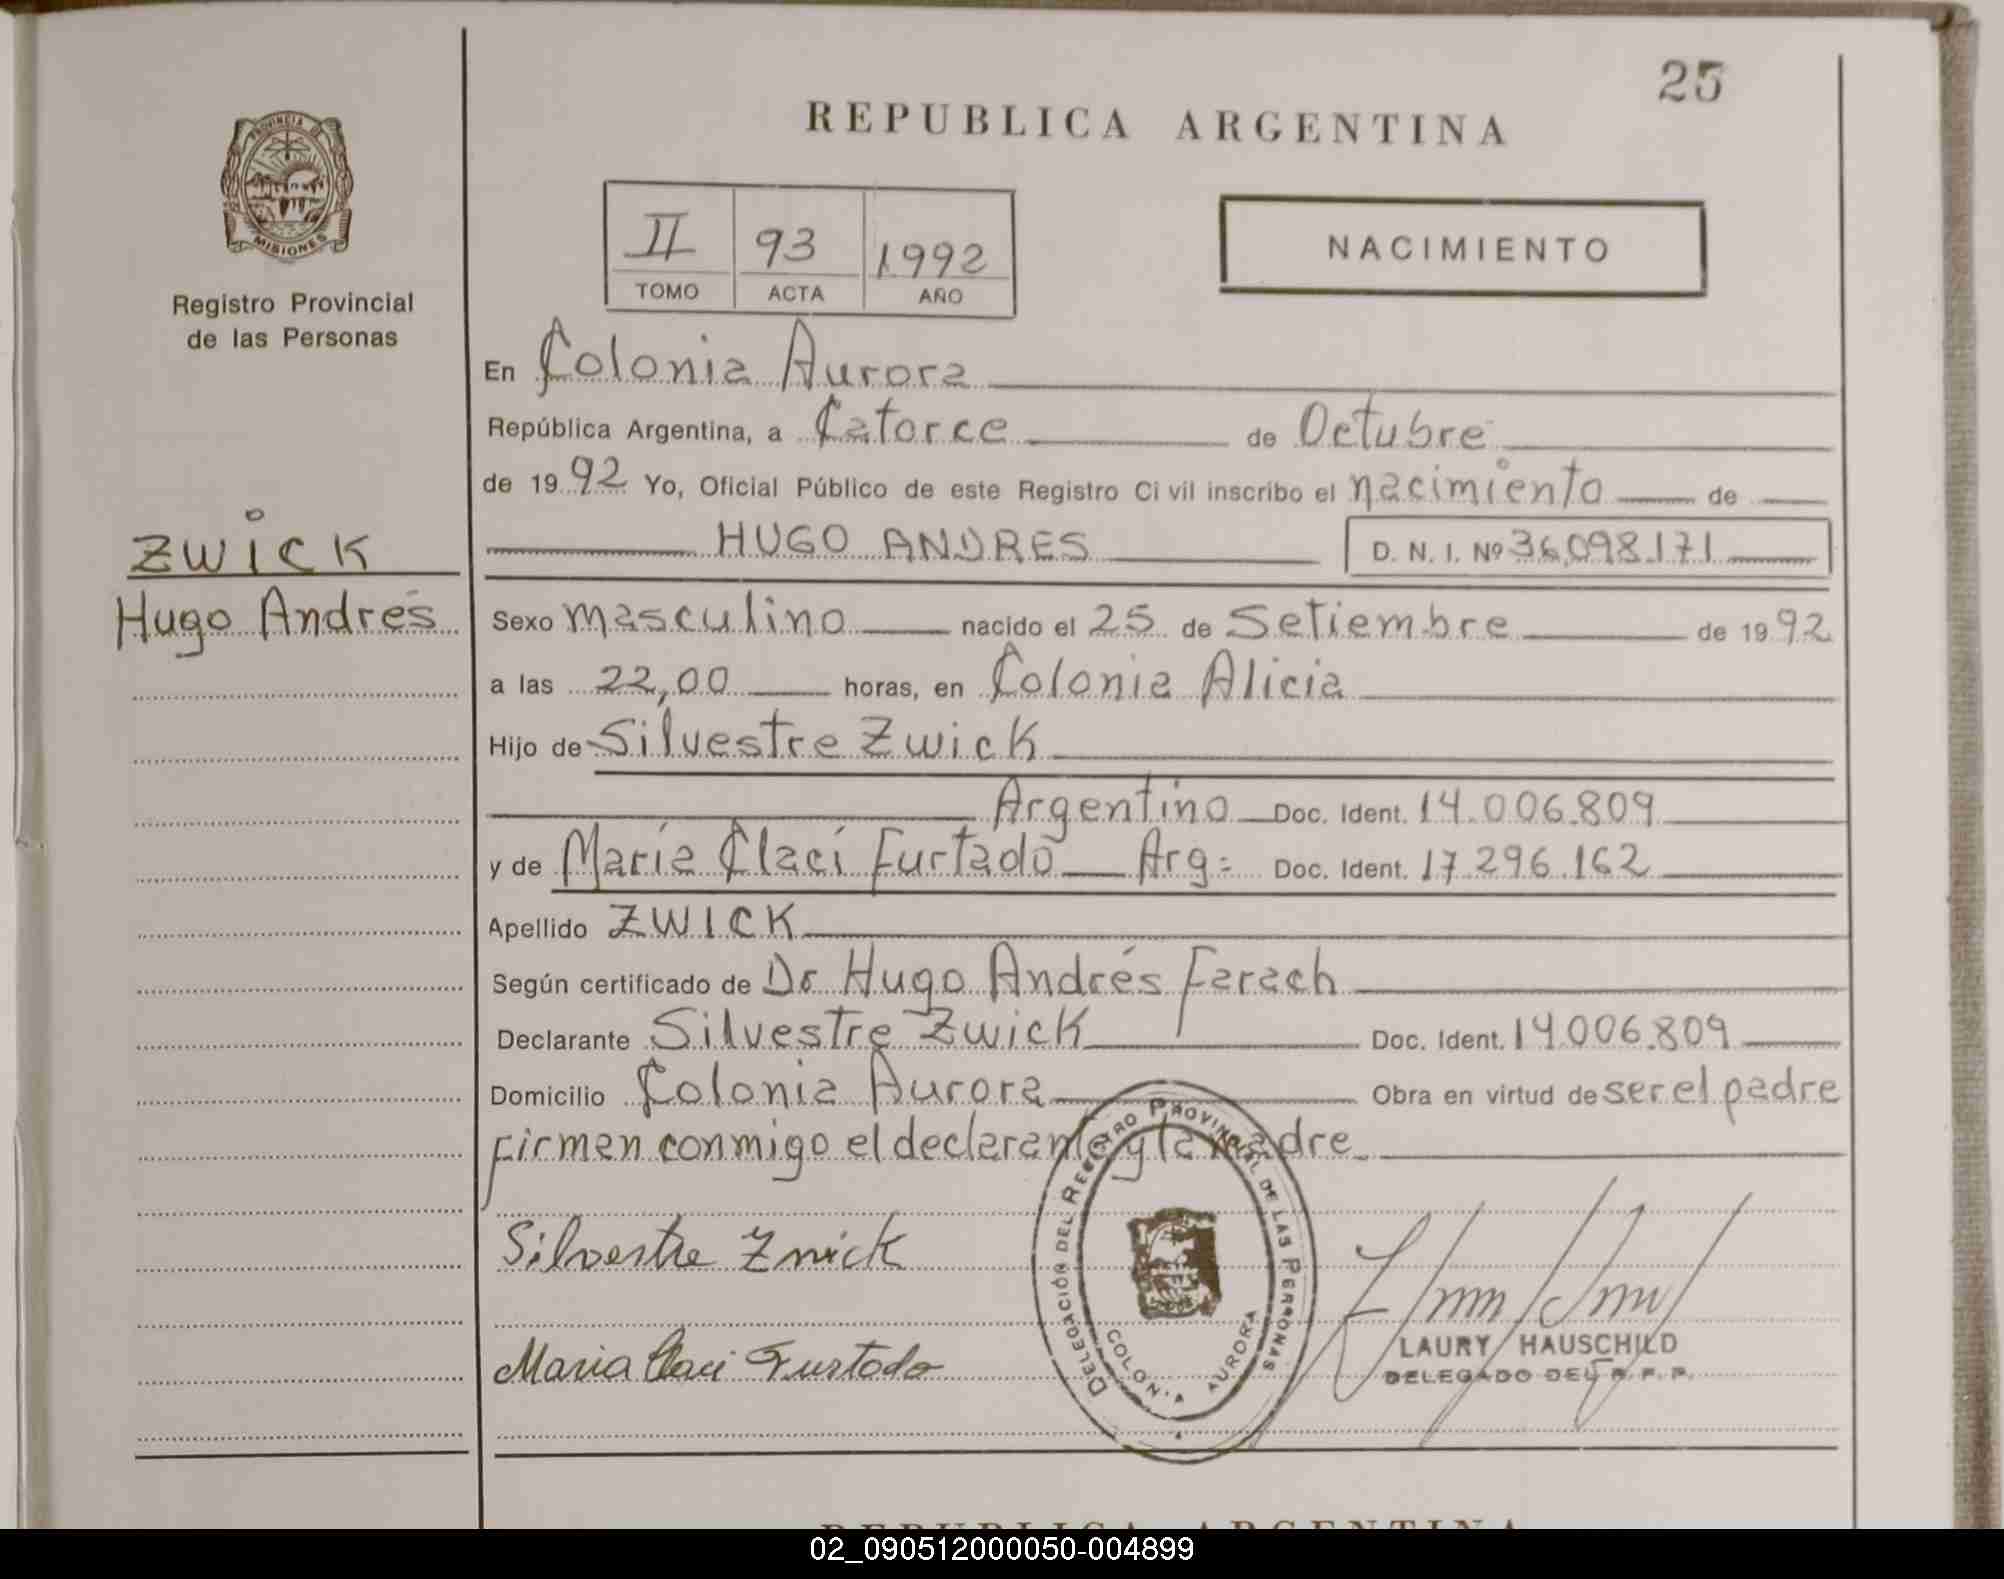 25
REPUBLICA ARGENTINA
PROVINCIA DE
MISIONES
Registro Provincial
de las Personas
II 93 1992
TOMO ACTA AÑO
NACIMIENTO
ZWICK
Hugo Andrés
En Colonia Aurora
República Argentina, a Catorce de Octubre
de 1992 Yo, Oficial Público de este Registro Civil inscribo el nacimiento de
HUGO ANDRES D. N. I. Nº 36.098.171
Sexo masculino nacido el 25 de Setiembre de 1992
a las 22,00 horas, en Colonia Alicia
Hijo de Silvestre Zwick
Argentino Doc. Ident. 14.006.809
y de María Claci Furtado Arg= Doc. Ident. 17.296.162
Apellido ZWICK
Según certificado de Dr Hugo Andrés Farach
Declarante Silvestre Zwick Doc. Ident. 14.006.809
Domicilio Colonia Aurora Obra en virtud de ser el padre
Firman conmigo el declarante y la madre
Silvestre Zwick
Maria Claci Furtado
DELEGACIÓN DEL REGISTRO PROVINCIAL DE LAS PERSONAS
COLONIA AURORA
LAURY HAUSCHILD
DELEGADO DEL R. P. P.
REPUBLICA ARGENTINA
02_090512000050-004899